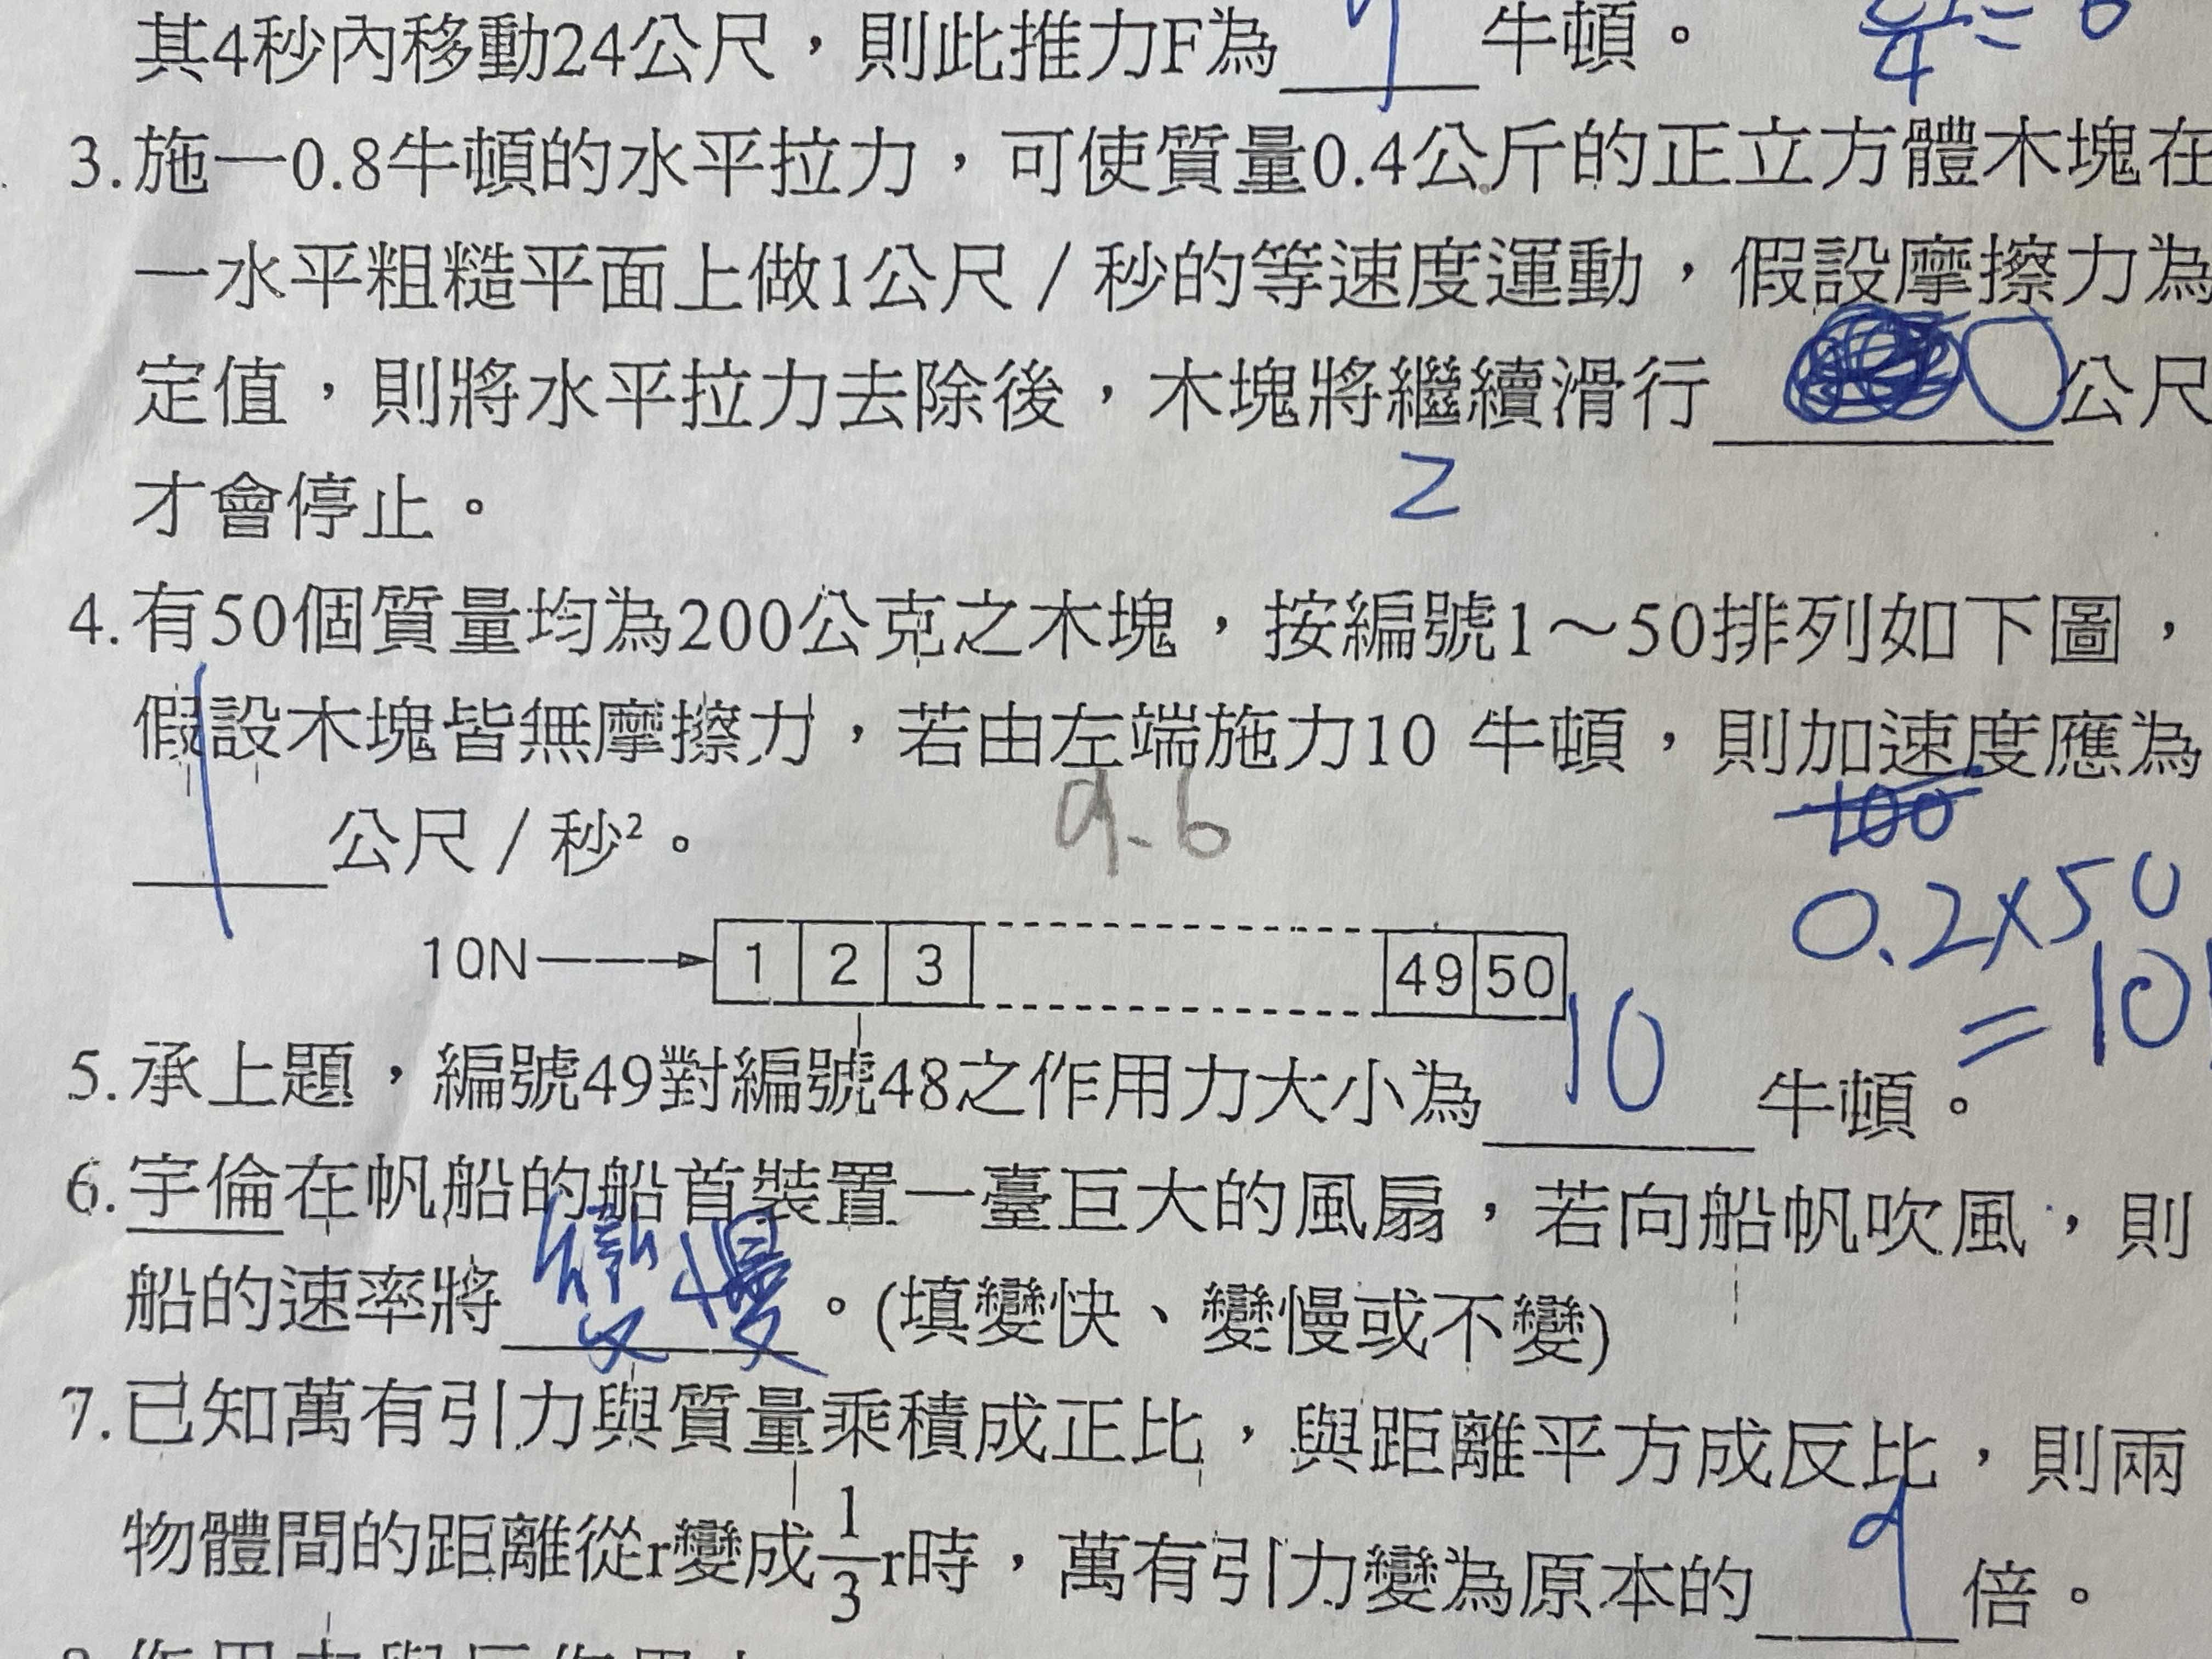 其4秒內移動24公尺，則此推力F為 9 牛頓。
4 = 6
3.施一0.8牛頓的水平拉力，可使質量0.4公斤的正立方體木塊在
一水平粗糙平面上做1公尺／秒的等速度運動，假設摩擦力為
定值，則將水平拉力去除後，木塊將繼續滑行 0 公尺
才會停止。
2
4.有50個質量均為200公克之木塊，按編號1～50排列如下圖，
假設木塊皆無摩擦力，若由左端施力10 牛頓，則加速度應為
100
1 公尺／秒²。
9.6
0.2×50
=10
10N 1 2 3 49 50
5.承上題，編號49對編號48之作用力大小為 10 牛頓。
6.宇倫在帆船的船首裝置一臺巨大的風扇，若向船帆吹風，則
船的速率將 變慢 。(填變快、變慢或不變)
7.已知萬有引力與質量乘積成正比，與距離平方成反比，則兩
物體間的距離從r變成1/3r時，萬有引力變為原本的 9 倍。